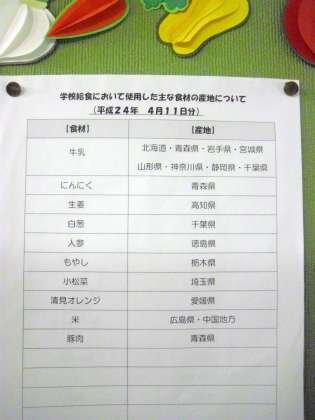 学校給食において使用した主な食材の産地について
（平成２４年　４月１１日分）
【食材】 【産地】
牛乳 北海道・青森県・岩手県・宮城県
山形県・神奈川県・静岡県・千葉県
にんにく 青森県
生姜 高知県
白葱 千葉県
人参 徳島県
もやし 栃木県
小松菜 埼玉県
清見オレンジ 愛媛県
米 広島県・中国地方
豚肉 青森県